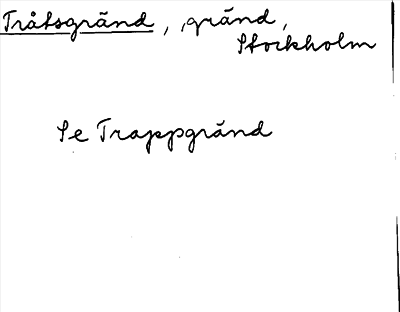 Tråtsgränd, gränd,
Stockholm
Se Trappgränd